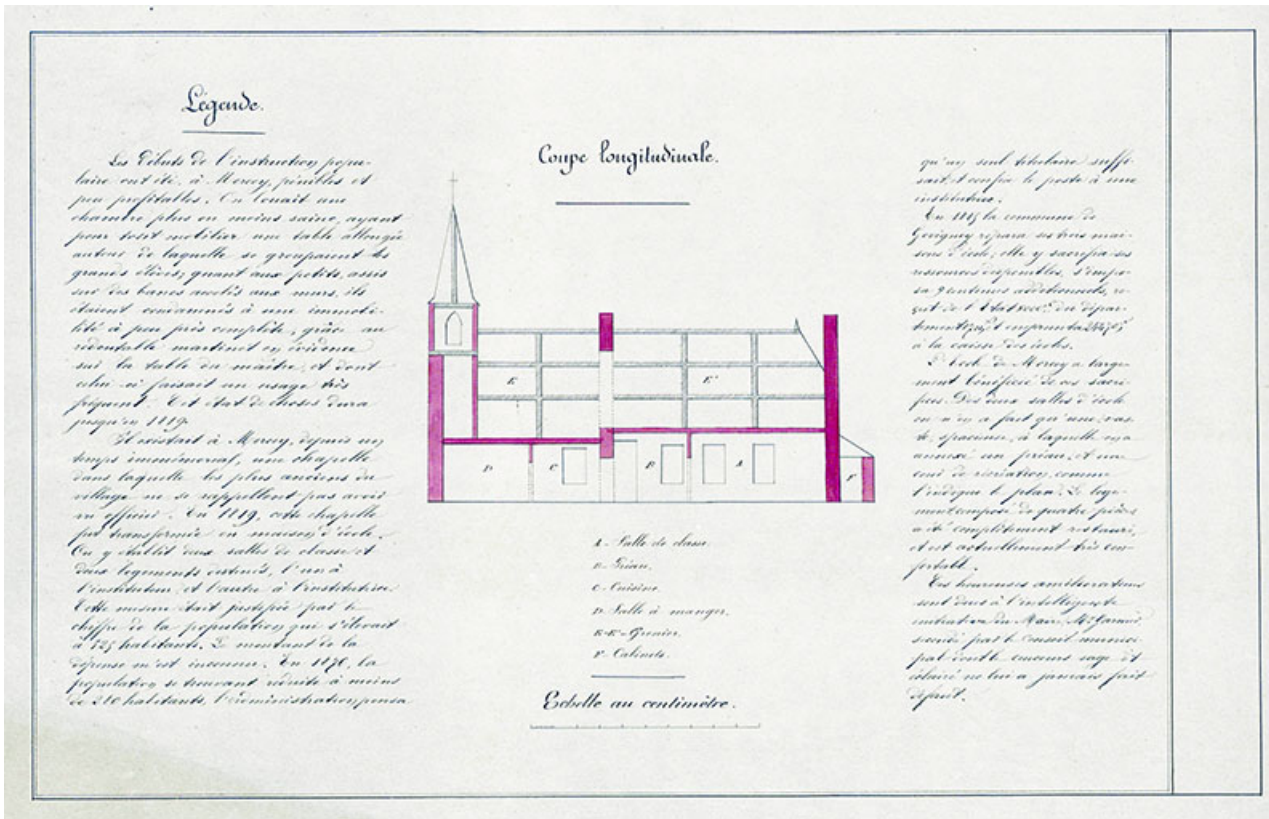 Légende.
Les débuts de l'instruction popu-
laire ont été, à Morcey, pénibles et
peu profitables. On louait une
chambre plus ou moins saine, ayant
pour tout mobilier une table allongée
autour de laquelle se groupaient les
grands élèves; quant aux petits, assis
sur des bancs accolés aux murs, ils
étaient condamnés à une immobi-
lité à peu près complète, grâce au
redoutable martinet en évidence
sur la table du maître, et dont
celui-ci faisait un usage très
fréquent. Cet état de choses dura
jusqu'en 1819.
Il existait à Morcey, depuis un
temps immémorial, une chapelle
dans laquelle les plus anciens du
village ne se rappellent pas avoir
vu officier. En 1819, cette chapelle
fut transformée en maison d'école.
On y établit deux salles de classe et
deux logements destinés, l'un à
l'instituteur et l'autre à l'institutrice.
Cette mesure était justifiée par le
chiffre de la population qui s'élevait
à 525 habitants. Le montant de la
dépense m'est inconnu. En 1870, la
population se trouvant réduite à moins
de 280 habitants, l'administration pensa
Coupe longitudinale.
E
E'
D
C
B
A
F
A - Salle de classe.
B - Préau.
C - Cuisine.
D - Salle à manger.
E-E' - Grenier.
F - Cabinets.
Echelle au centimètre.
qu'un seul titulaire suffi-
sait et confia le poste à une
institutrice.
En 1885 la commune de
Gevigney répara ses trois mai-
sons d'école; elle y sacrifia ses
ressources disponibles, s'impo-
sa 9 centimes additionnels, re-
çut de l'Etat du dépar-
tement et emprunta
à la caisse des écoles.
L'école de Morcey a large-
ment bénéficié de ces sacri-
fices. Des deux salles d'école
on n'en a fait qu'une, vas-
te, spacieuse, à laquelle on a
annexé un préau, et une
cour de récréation, comme
l'indique le plan. Le loge-
ment composé de quatre pièces
a été complètement restauré,
et est actuellement très con-
fortable.
Ces heureuses améliorations
sont dues à l'intelligente
initiative du Maire, Mr
secondé par le Conseil munici-
pal dont le concours sage et
éclairé ne lui a jamais fait
défaut.